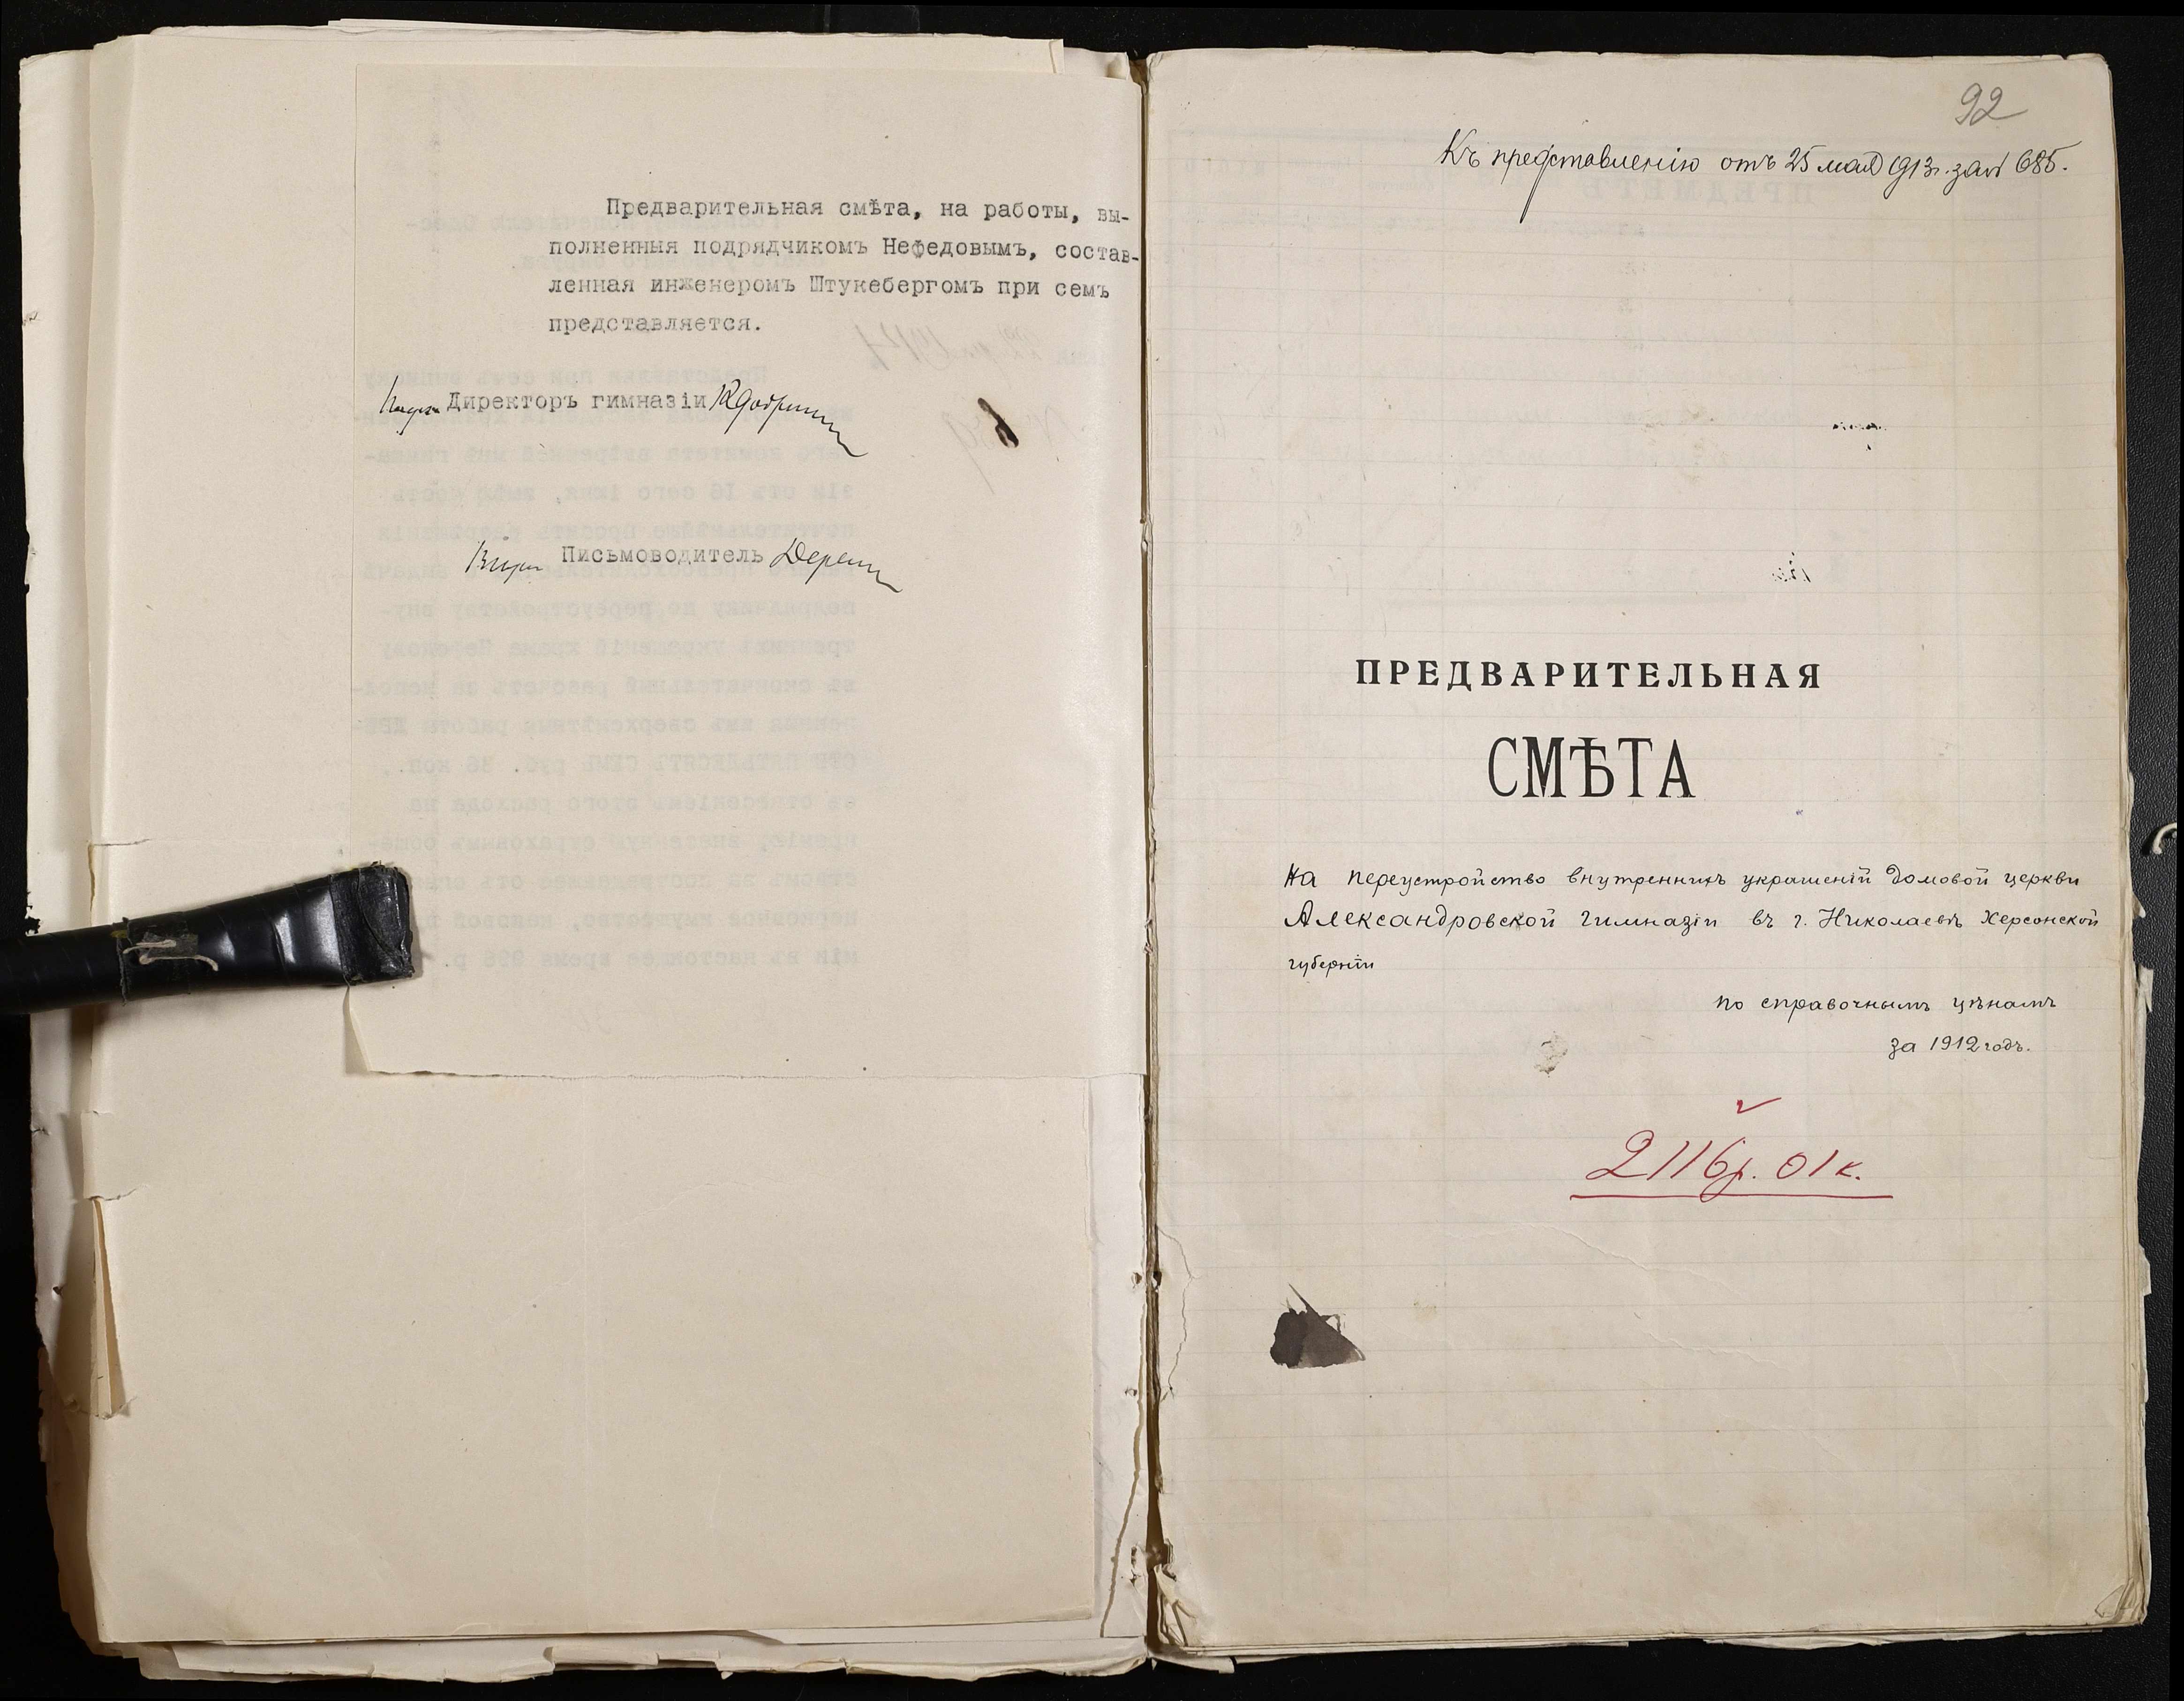 Предварительная смѣта, на работы, вы-
полненныя подрядчикомъ Нефедовымъ, состав-
ленная инженеромъ Штукебергомъ при семъ
представляется.
Директоръ гимназіи
Письмоводитель
92
Къ представленію отъ 25 мая 1913 г. за № 685.
ПРЕДВАРИТЕЛЬНАЯ
СМѢТА
На переустройство внутреннихъ украшеній домовой церкви
Александровской гимназіи въ г. Николаевѣ Херсонской
губерніи
по справочнымъ цѣнамъ
за 1912 годъ.
2116 р. 01 к.